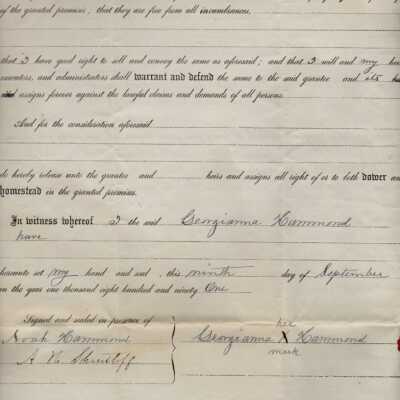 of the granted premises; that they are free from all incumbrances.
that I have good right to sell and convey the same as aforesaid; and that I will and my heirs
executors, and administrators shall warrant and defend the same to the said grantee and its
and assigns forever against the lawful claims and demands of all persons.
And for the consideration aforesaid
do hereby release unto the grantee and heirs and assigns all right of or to both dower and
homestead in the granted premises.
In witness whereof I the said Georgianna Hammond
have
hereunto set my hand and seal, this ninth day of September
in the year one thousand eight hundred and ninety One
Signed and sealed in presence of
Noah Hammond
A
her
Georgianna X Hammond
mark